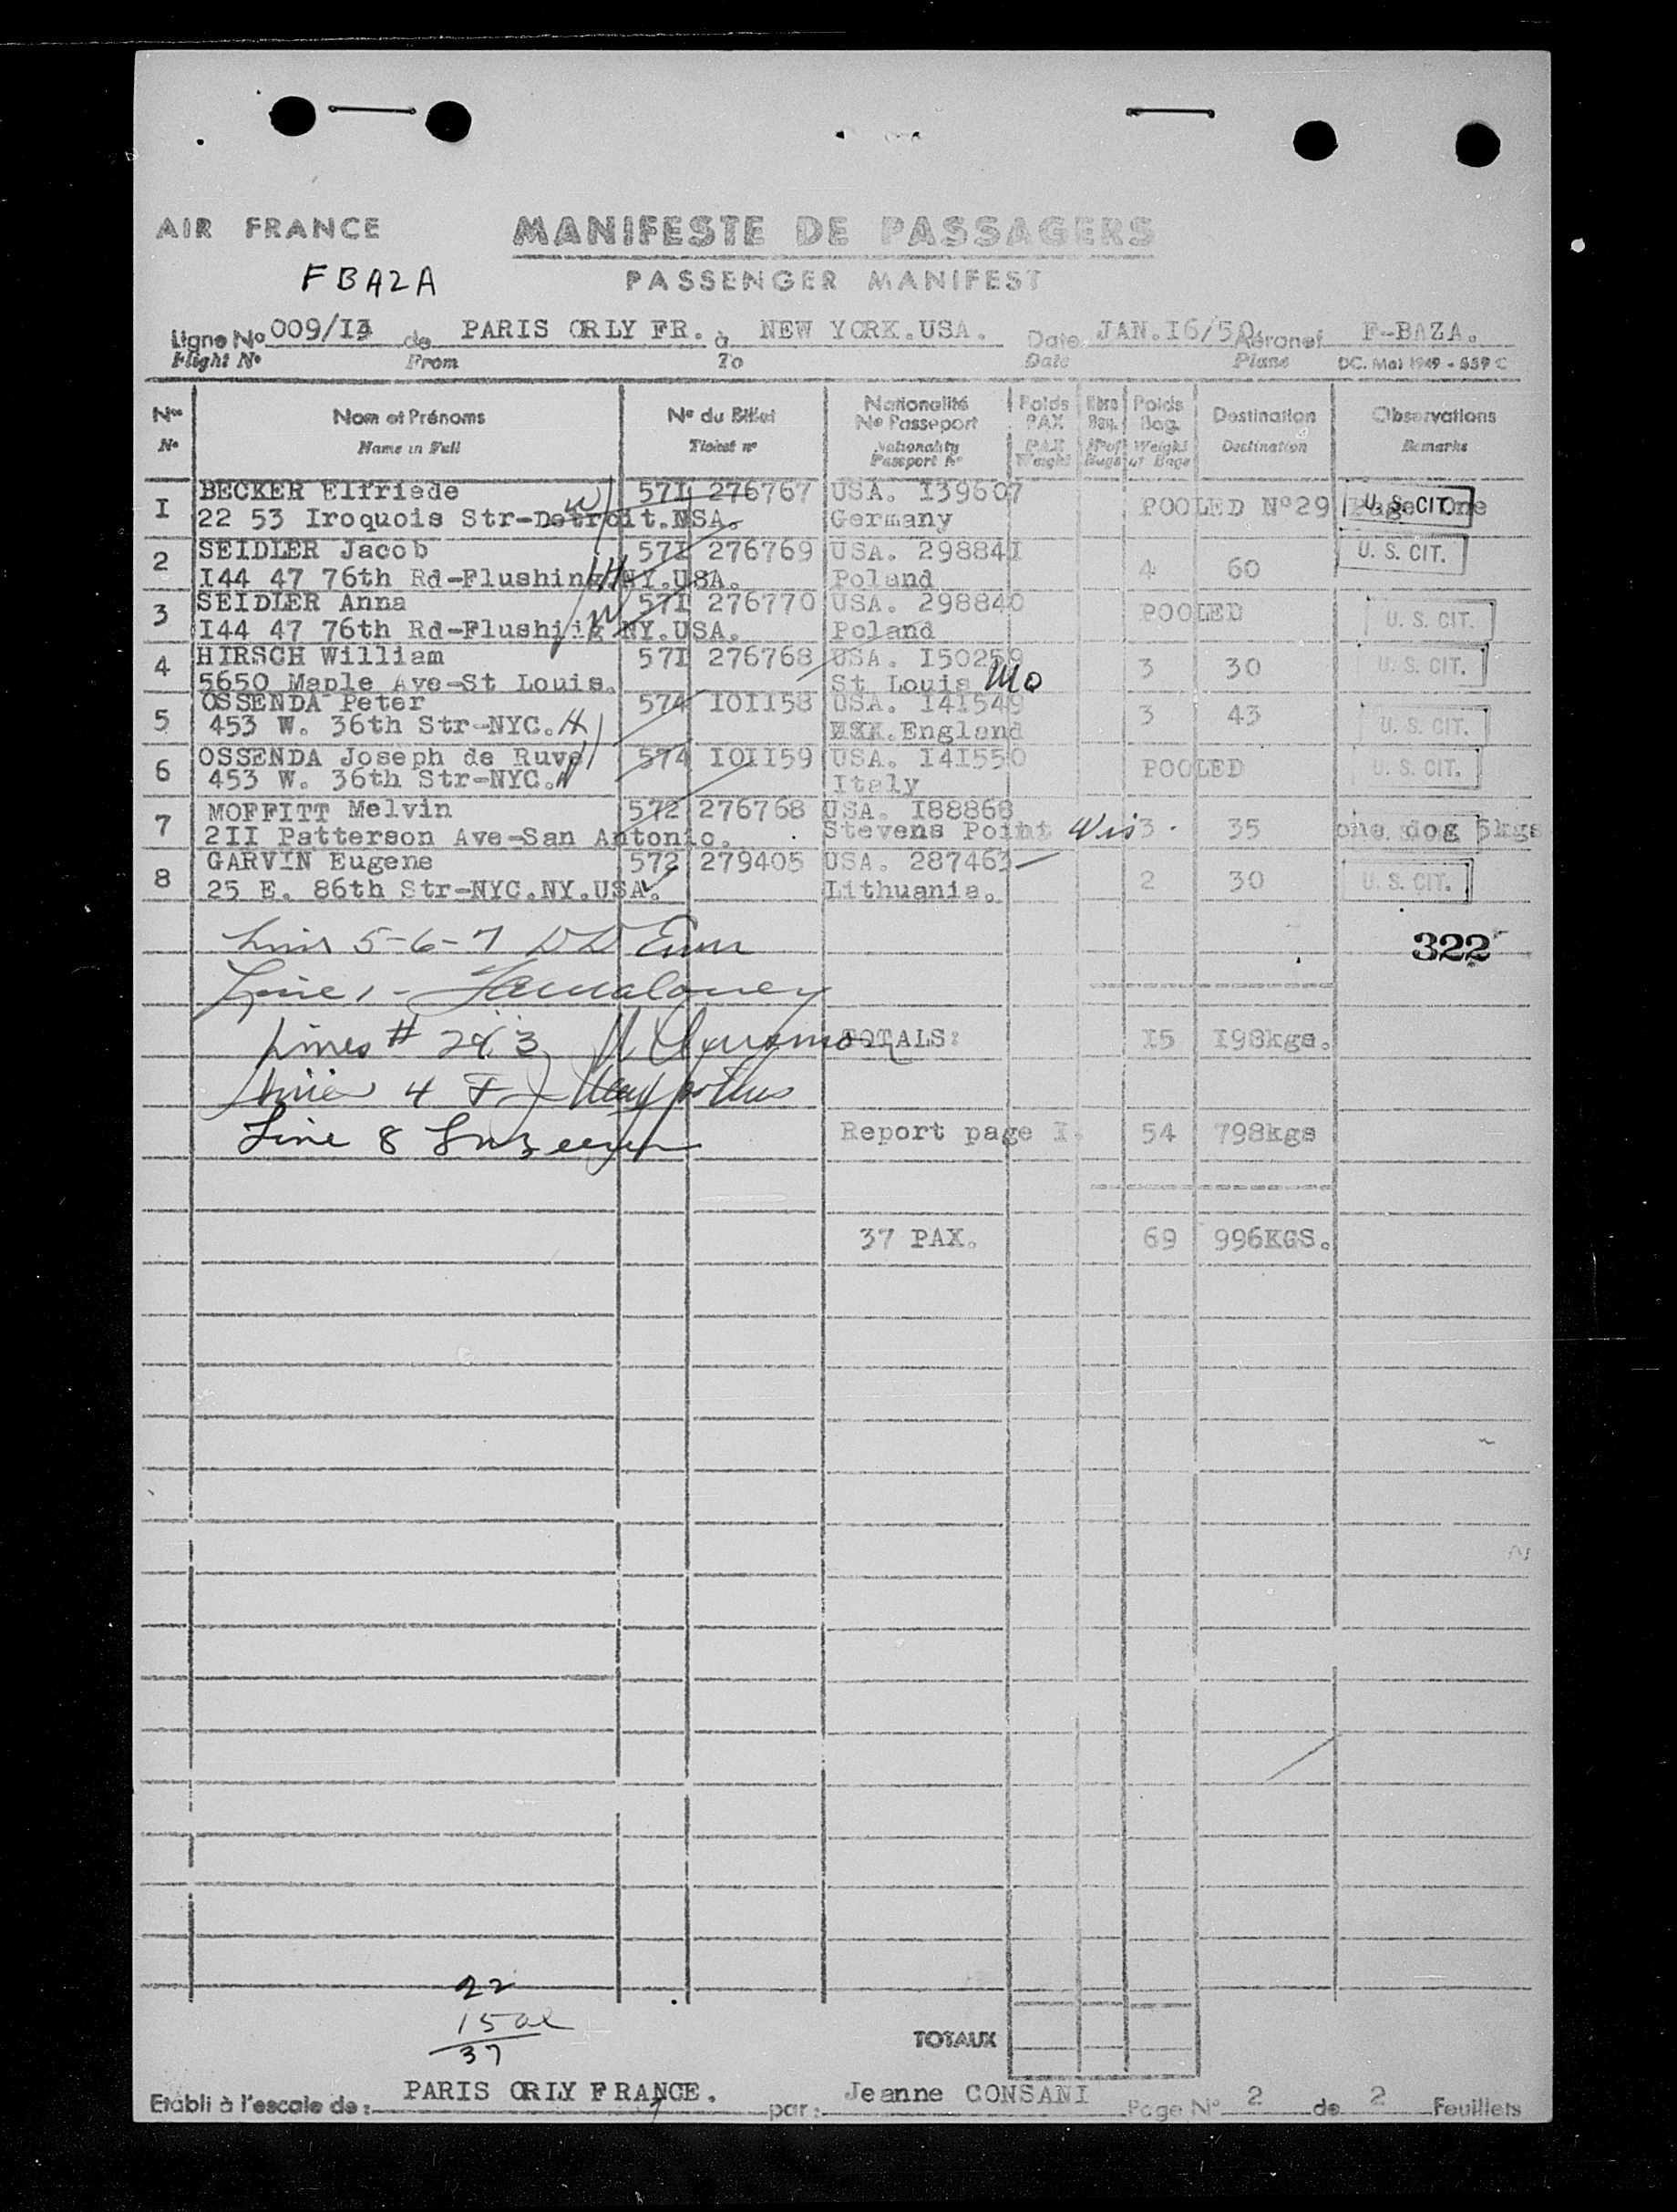 AIR FRANCE
MANIFESTE DE PASSAGERS
PASSENGER MANIFEST
FBAZA
Ligne No 009/I3 de PARIS ORLY FR. à NEW YORK.USA. Date JAN.I6/50 Aéronef F-BAZA.
Flight No From To Date Plane DC. Mai 1949 - 559 C
Nos Nom et Prénoms No du Billet Nationalité No Passeport Poids PAX Nbre Bag. Poids Bag. Destination Observations
No Name in Full Ticket no Nationality Passport No PAX Weight Nr of Bags Weight of Bags Destination Remarks
I BECKER Elfriede 57I 276767 USA. I39607 POOLED No29 Page One U. S. CIT.
22 53 Iroquois Str-Detroit.USA. Germany
2 SEIDLER Jacob 57I 276769 USA. 29884I 4 60 U. S. CIT.
I44 47 76th Rd-Flushing NY.USA. Poland
3 SEIDLER Anna 57I 276770 USA. 298840 POOLED U. S. CIT.
I44 47 76th Rd-Flushing NY.USA. Poland
4 HIRSCH William 57I 276768 USA. I50259 3 30 U. S. CIT.
5650 Maple Ave-St Louis. St Louis Mo
5 OSSENDA Peter 574 IOII58 USA. I4I549 3 43 U. S. CIT.
453 W. 36th Str-NYC. England
6 OSSENDA Joseph de Ruve 574 IOII59 USA. I4I550 POOLED U. S. CIT.
453 W. 36th Str-NYC. Italy
7 MOFFITT Melvin 572 276768 USA. I88868 3 35 one dog 5kgs
2II Patterson Ave-San Antonio. Stevens Point Wis
8 GARVIN Eugene 572 279405 USA. 287463 2 30 U. S. CIT.
25 E. 86th Str-NYC.NY.USA. Lithuania.
5-6-7
322
Line 1 -
Lines # 2 & 3 TOTALS: I5 I98kgs.
4
Line 8 Report page I. 54 798kgs
37 PAX. 69 996KGS.
22
15
37
TOTAUX
Etabli à l'escale de : PARIS ORLY FRANCE. par : Jeanne CONSANI Page No 2 de 2 Feuillets